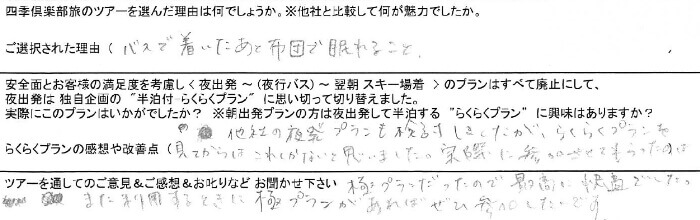 四季倶楽部旅のツアーを選んだ理由は何でしょうか。※他社と比較して何が魅力でしたか。
ご選択された理由（バスで着いたあと布団で眠れること。
安全面とお客様の満足度を考慮し＜夜出発 ～（夜行バス）～ 翌朝 スキー場着 ＞のプランはすべて廃止にして、
夜出発は 独自企画の “半泊付 らくらくプラン” に思い切って切り替えました。
実際にこのプランはいかがでしたか？ ※朝出発プランの方は夜出発して半泊する “らくらくプラン” に興味はありますか？
他社の夜発プランも検討しましたが、らくらくプランを
らくらくプランの感想や改善点（見てからはこれしかないと思いました。実際に参加させてもらったのは
ツアーを通してのご意見＆ご感想＆お叱りなど お聞かせ下さい 極プランだったので最高に快適でした。
また利用するときに極プランがあればぜひ参加したいです